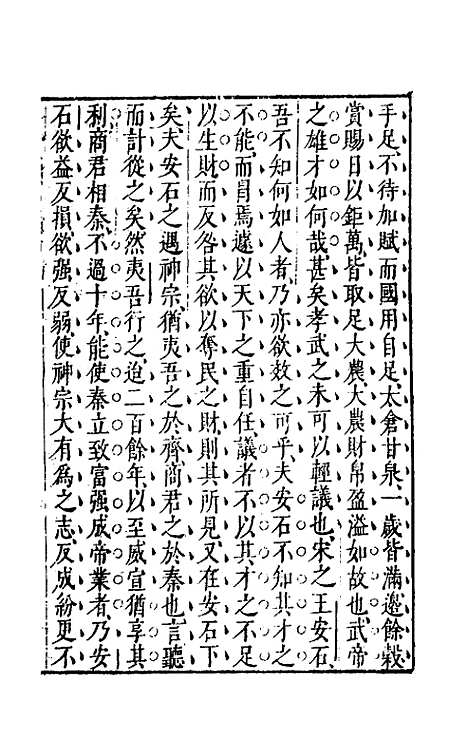 手足不待加賦而國用自足太倉甘泉一歲皆滿邊餘穀
賞賜日以鉅萬皆取足大農大農財帛盈溢如故也武帝
之雄才如何哉甚矣孝武之未可以輕議也宋之王安石
吾不知何如人者乃亦欲效之可乎夫安石不知其才之
不能而冐焉遽以天下之重自任議者不以其才之不足
以生財而反咎其欲以奪民之財則其所見又在安石下
矣夫安石之遇神宗猶夷吾之於齊商君之於秦也言聽
而計從之矣然夷吾行之迨二百餘年以至威宣猶享其
利商君相秦不過十年能使秦立致富强成帝業者乃安
石欲益反損欲强反弱使神宗大有爲之志反成紛更不